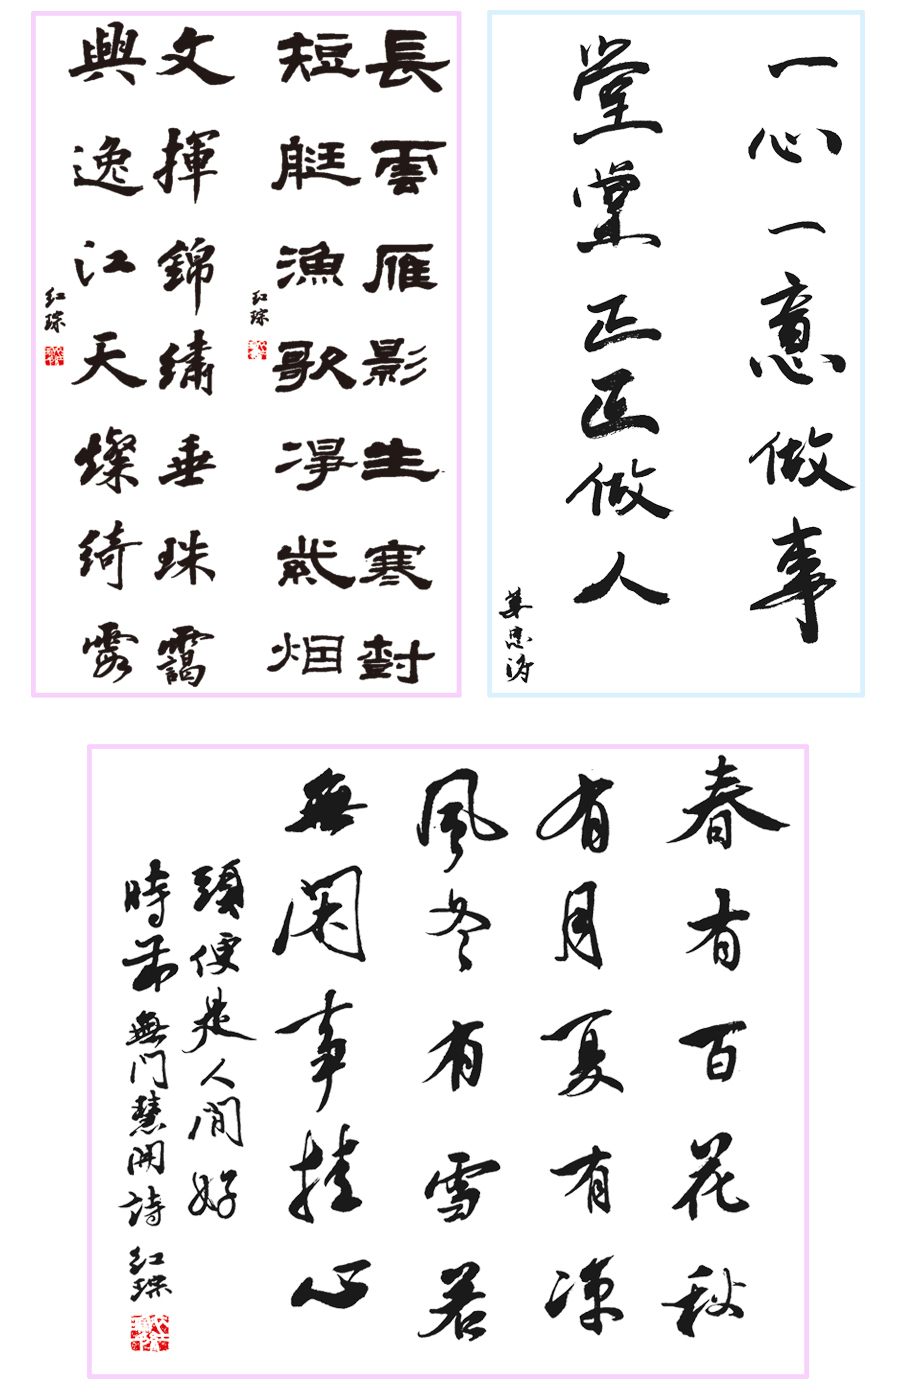 長雲雁影生寒對
短艇漁歌凈紫烟
红琮
文揮錦繡垂珠靄
興逸江天燦綺霞
红琮
一心一意做事
堂堂正正做人
春有百花秋
有月夏有凉
風冬有雪若
無閑事挂心
頭便是人間好
時節 無門慧開詩 红琮